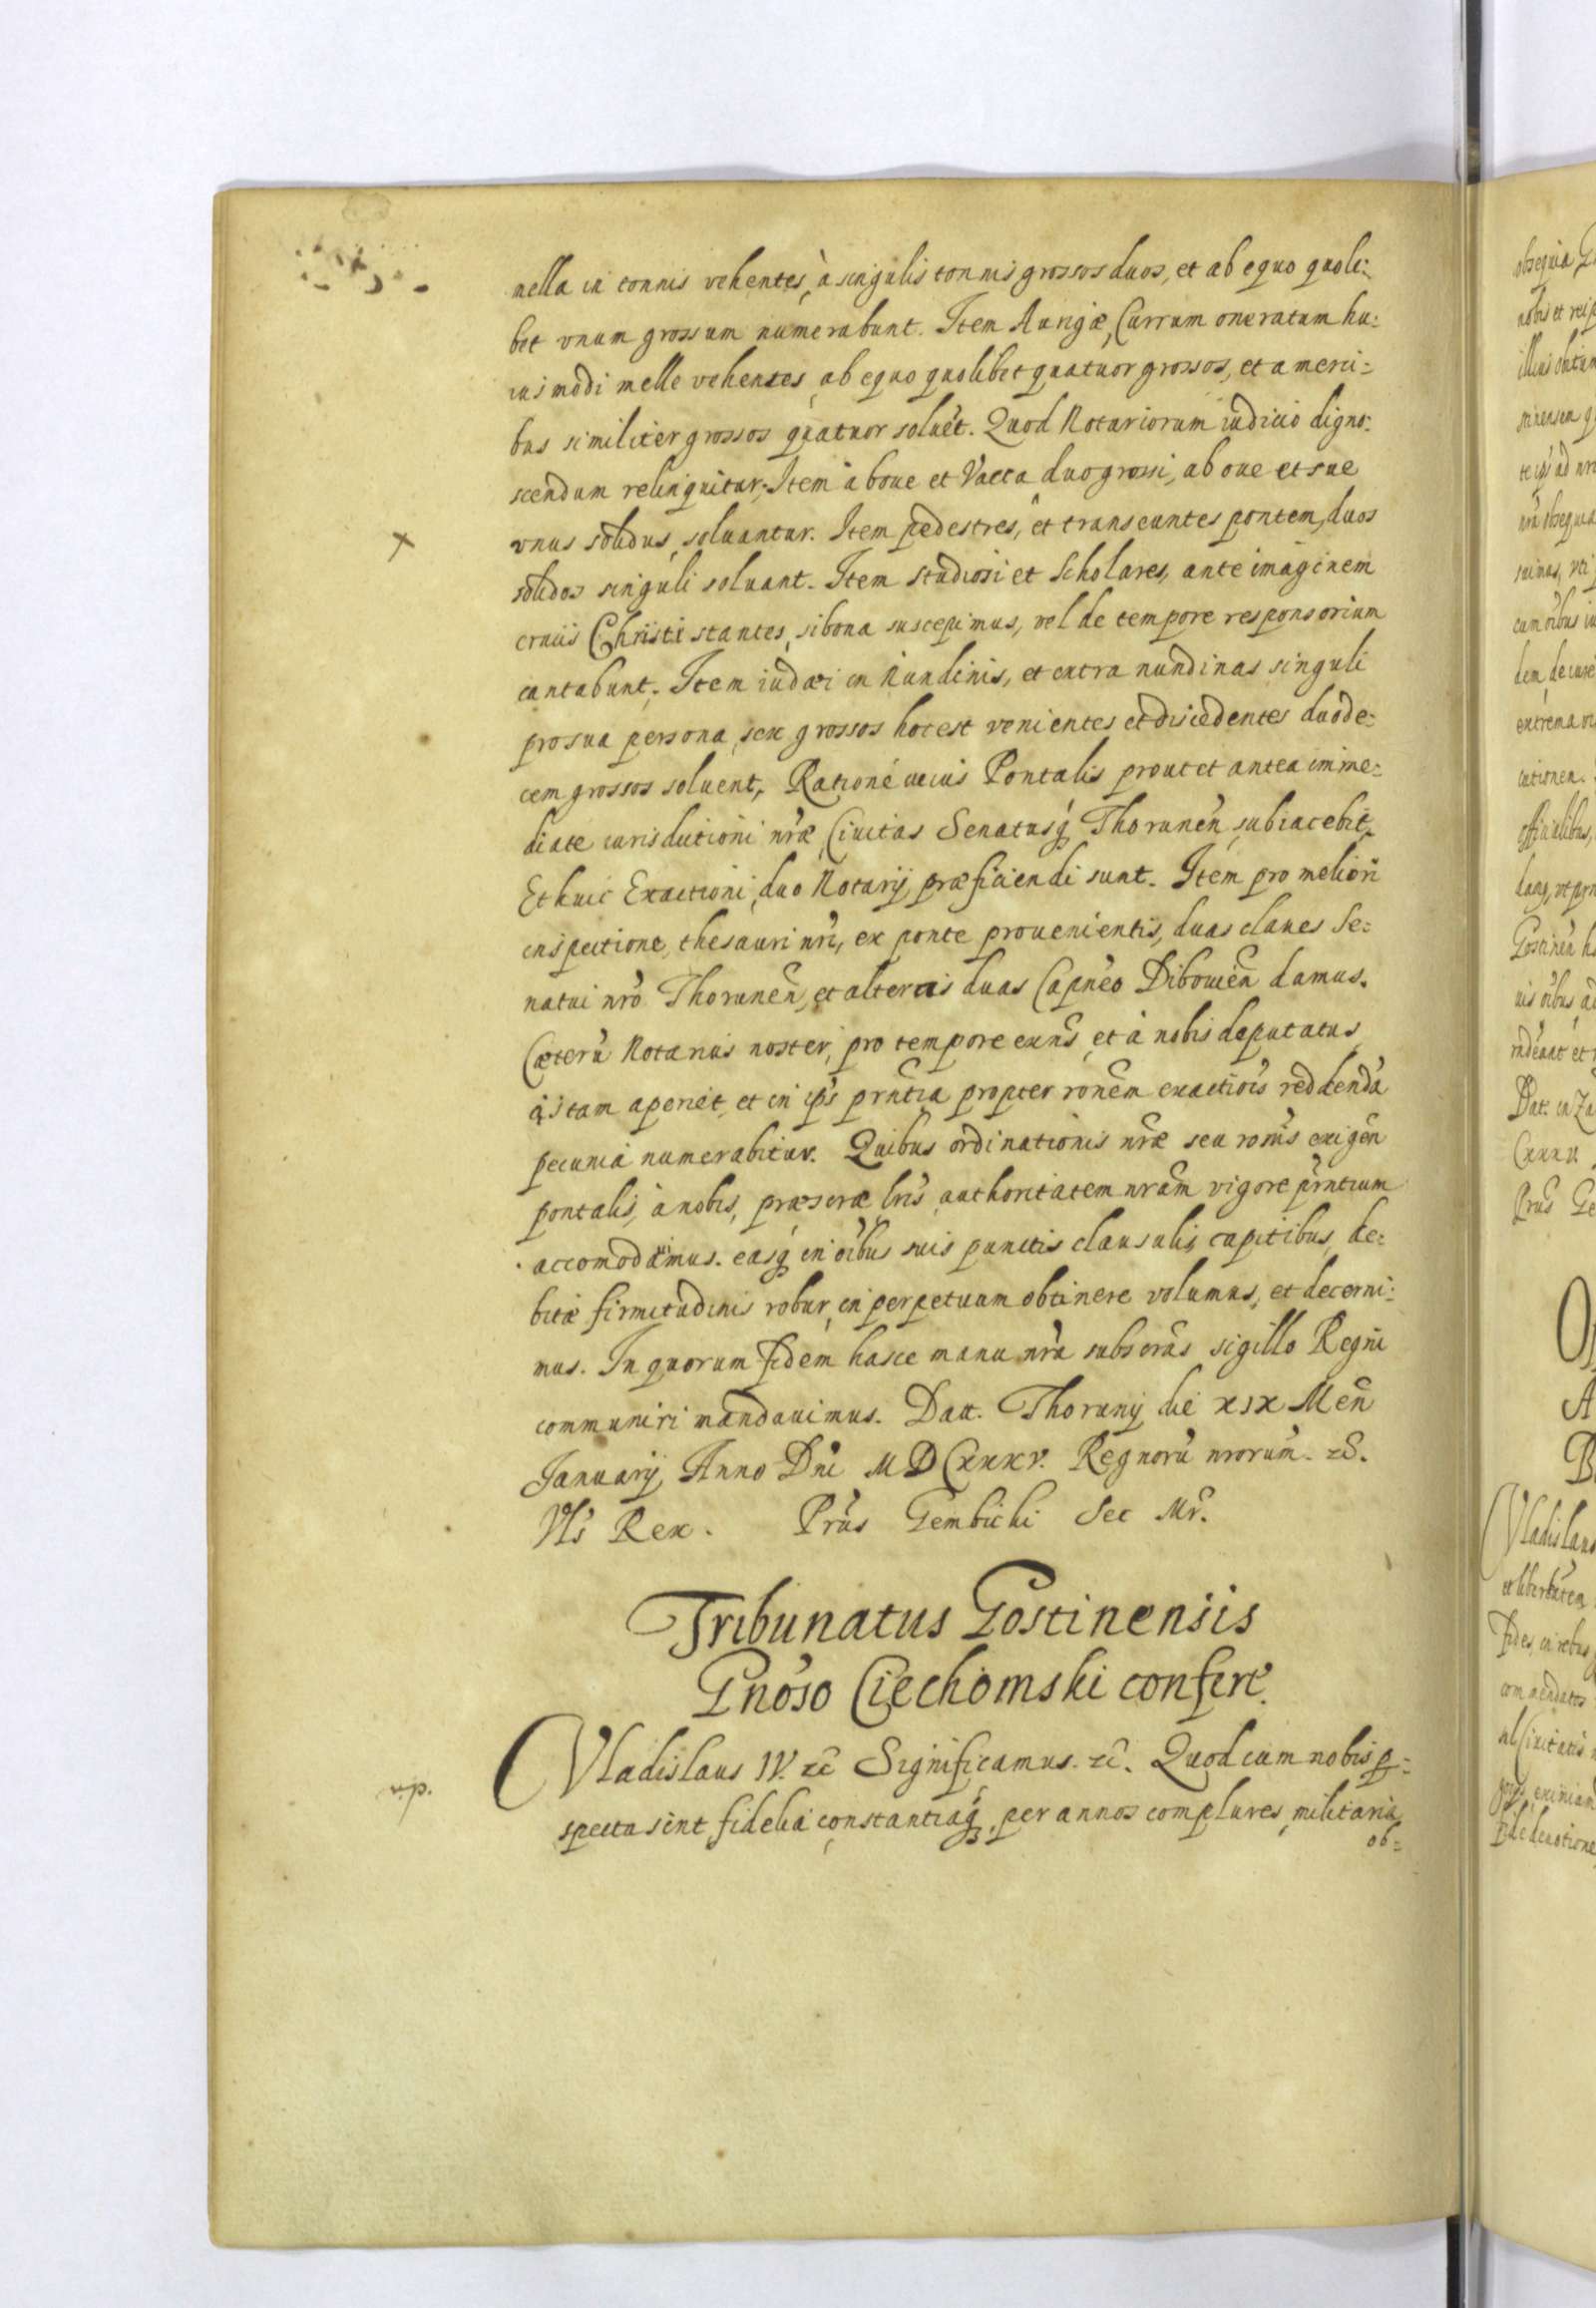 mella in tonnis vehentes, à singulis tonnis grossos duos, et ab equo quoli:
bet vnum grossum numerabunt. Item Aurigæ, Currum oneratum hu:
iusmodi melle vehentes, ab equo quolibet quatuor grossos, et a merci:
bus similiter grossos quatuor soluēt. Quod Notariorum iudicio digno:
scendum relinquitur; Item à boue et Vacca duo grossi, ab oue et sue
vnus solidus, soluantur. Item pedestres, et transeuntes pontem, duos
solidos singuli soluant. Item studiosi et Scholares, ante imaginem
crucis Christi stantes, si bona suscepimus, vel de tempore responsorium
cantabunt; Item iudæi in Nundinis, et extra nundinas singuli
pro sua persona sex grossos hoc est venientes et discedentes duode:
cem grossos soluent, Rationé uecuis Pontalis prout et antea imme:
diate iurisdictioni nr̄æ Ciuitas Senatusq́ Thorunen̄ subiacebit.
Et huic Exactioni, duo Notarij præficiendi sunt. Item pro meliori
inspectione, thesauri nr̄i, ex ponte prouenientis, duas claues Se:
natui nr̄o Thorunen̄, et alteras duas Capn̄eo Dibouien̄ damus.
Cæterū Notarius noster, pro tempore exn̄s, et à nobis deputatus
cistam aperiet, et in ip̄s prn̄tia propter ron̄em exactiōis reddendā
pecunia numerabitur. Quibus ordinationis nr̄æ seu ron̄is exigen̄
pontalis, à nobis, præscræ lrīs, authoritatem nr̄am vigore prn̄tium
accomodauimus. easq́ in oībus suis punctis clausulis, capitibus, de:
bitæ firmitudinis robur, in perpetuum obtinere volumus, et decerni:
mus. In quorum fidem hasce manu nr̄a subscr̄as sigillo Regni
communiri mandauimus. Datt. Thorunij die XIX Men̄
Januarij Anno Dn̄i MDCXXXV. Regnorū nrorum̄. &c̄.
Vl̄s Rex. Pr̄us Gembicki Sec Mr̄.
Tribunatus Gostinensis
Gnōso Ciechomski confert̄.
v.p.
Vladislaus IV. &c̄ Significamus. &c̄. Quod cum nobis p:
specta sint fidelia constantiaq́, per annos complures, militaria
ob=